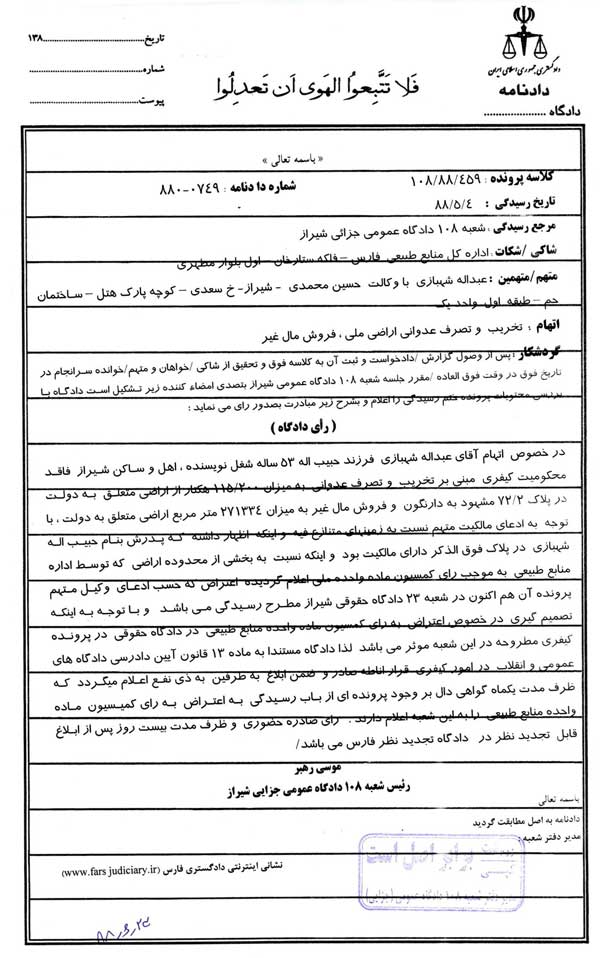 تاریخ.......................۱۳۸
شماره.......................
پیوست.......................
فَلا تَتَّبِعوُا الهَوی اَن تَعدِلُوا
دادگستری جمهوری اسلامی ایران
دادنامه
دادگاه .....................
« باسمه تعالی »
کلاسه پرونده : ۱۰۸/۸۸/۴۵۹ شماره دادنامه : ۰۷۴۹-۸۸۰
تاریخ رسیدگی : ۸۸/۵/۴
مرجع رسیدگی : شعبه ۱۰۸ دادگاه عمومی جزائی شیراز
شاکی /شکات : اداره کل منابع طبیعی فارس – فلکه ستارخان – اول بلوار مطهری
متهم/متهمین : عبداله شهبازی با وکالت حسین محمدی - شیراز- خ سعدی – کوچه پارک هتل – ساختمان
جم – طبقه اول واحد یک
اتهام : تخریب و تصرف عدوانی اراضی ملی ، فروش مال غیر
گردشکار : پس از وصول گزارش /دادخواست و ثبت آن به کلاسه فوق و تحقیق از شاکی /خواهان و متهم/خوانده سرانجام در
تاریخ فوق در وقت فوق العاده /مقرر جلسه شعبه ۱۰۸ دادگاه عمومی شیراز بتصدی امضاء کننده زیر تشکیل است دادگاه با
بررسی محتویات پرونده ختم رسیدگی را اعلام و بشرح زیر مبادرت بصدور رای می نماید :
( رأی دادگاه )
در خصوص اتهام آقای عبداله شهبازی فرزند حبیب اله ۵۳ ساله شغل نویسنده ، اهل و ساکن شیراز فاقد
محکومیت کیفری مبنی بر تخریب و تصرف عدوانی به میزان ۱۱۵/۲۰۰ هکتار از اراضی متعلق به دولت
در پلاک ۷۲/۲ مشهود به دارنگون و فروش مال غیر به میزان ۲۷۱۳۳۴ متر مربع اراضی متعلق به دولت ، با
توجه به ادعای مالکیت متهم نسبت به زمینهای متنازع فیه و اینکه اظهار داشته که پدرش بنام حبیب اله
شهبازی در پلاک فوق الذکر دارای مالکیت بود و اینکه نسبت به بخشی از محدوده اراضی که توسط اداره
منابع طبیعی به موجب رای کمسیون ماده واحده ملی اعلام گردیده اعتراض که حسب ادعای وکیل متهم
پرونده آن هم اکنون در شعبه ۲۳ دادگاه حقوقی شیراز مطرح رسیدگی می باشد و با توجه به اینکه
تصمیم گیری در خصوص اعتراض به رای کمسیون ماده واحده منابع طبیعی در دادگاه حقوقی در پرونده
کیفری مطروحه در این شعبه موثر می باشد لذا دادگاه مستندا به ماده ۱۳ قانون آیین دادرسی دادگاه های
عمومی و انقلاب در امور کیفری قرار اناطه صادر و ضمن ابلاغ به طرفین به ذی نفع اعلام میگردد که
ظرف مدت یکماه گواهی دال بر وجود پرونده ای از باب رسیدگی به اعتراض به رای کمیسیون ماده
واحده منابع طبیعی را به این شعبه اعلام دارند . رای صادره حضوری و ظرف مدت بیست روز پس از ابلاغ
قابل تجدید نظر در دادگاه تجدید نظر فارس می باشد/
موسی رهبر
رئیس شعبه ۱۰۸ دادگاه عمومی جزایی شیراز
باسمه تعالی
دادنامه به اصل مطابقت گردید
مدیر دفتر شعبه :
برابر اصل است
مدیر دفتر شعبه ۱۰۸ دادگاه عمومی (جزایی)
نشانی اینترنتی دادگستری فارس (www.fars judiciary.ir)